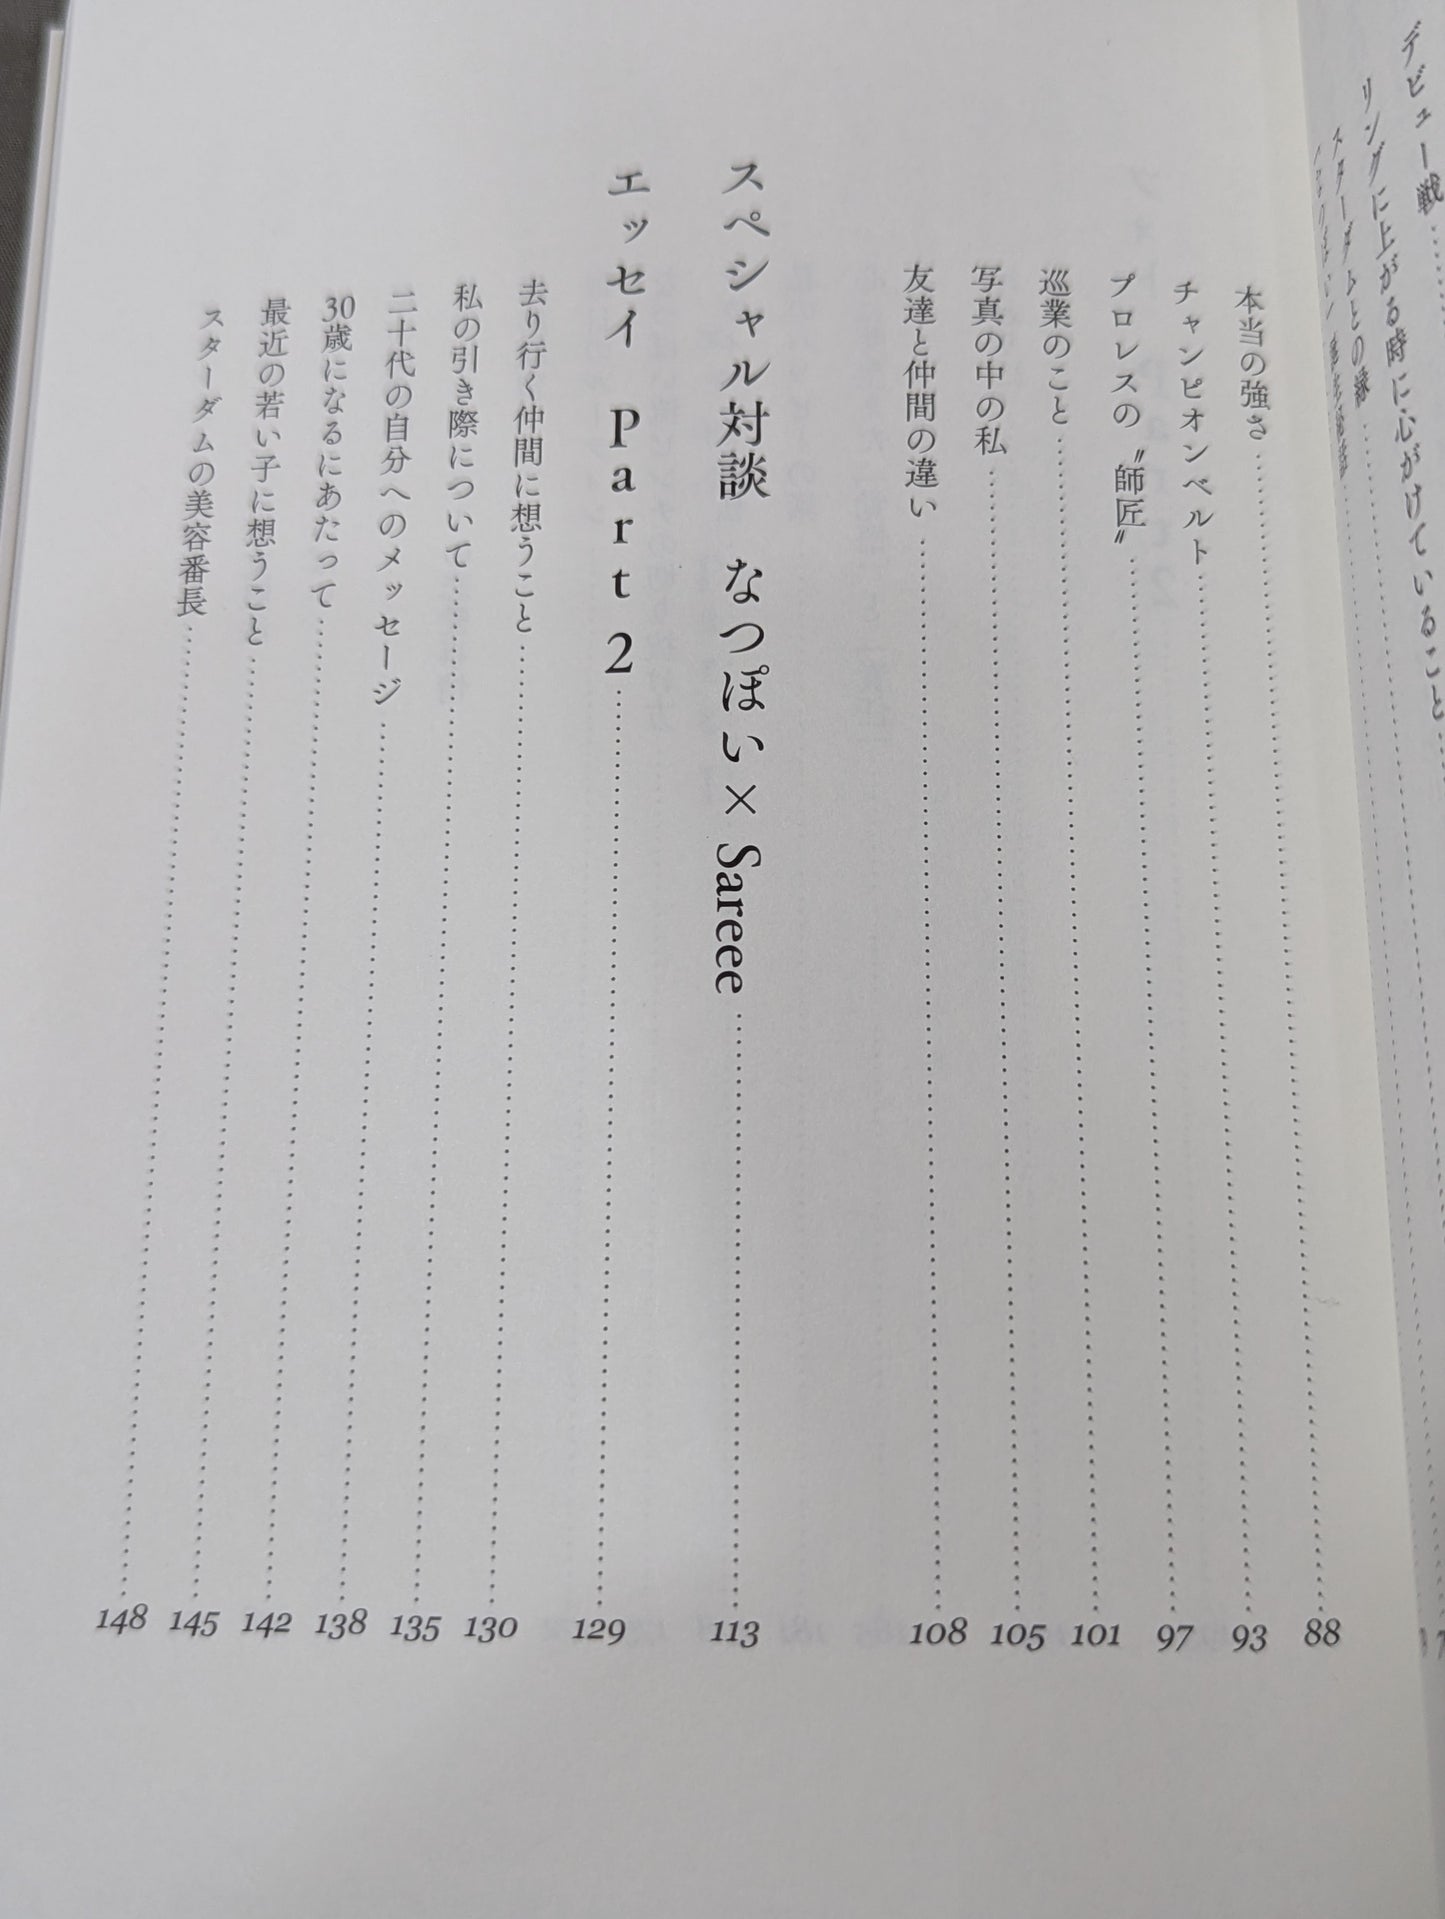 デビュー戦
リングに上がる時に心がけていること
スターダムとの縁
本当の強さ 88
チャンピオンベルト 93
プロレスの〝師匠〟 97
巡業のこと 101
写真の中の私 105
友達と仲間の違い 108
スペシャル対談 なつぽい×Sareee 113
エッセイ Part 2 129
去り行く仲間に想うこと 130
私の引き際について 135
二十代の自分へのメッセージ 138
30歳になるにあたって 142
最近の若い子に想うこと 145
スターダムの美容番長 148